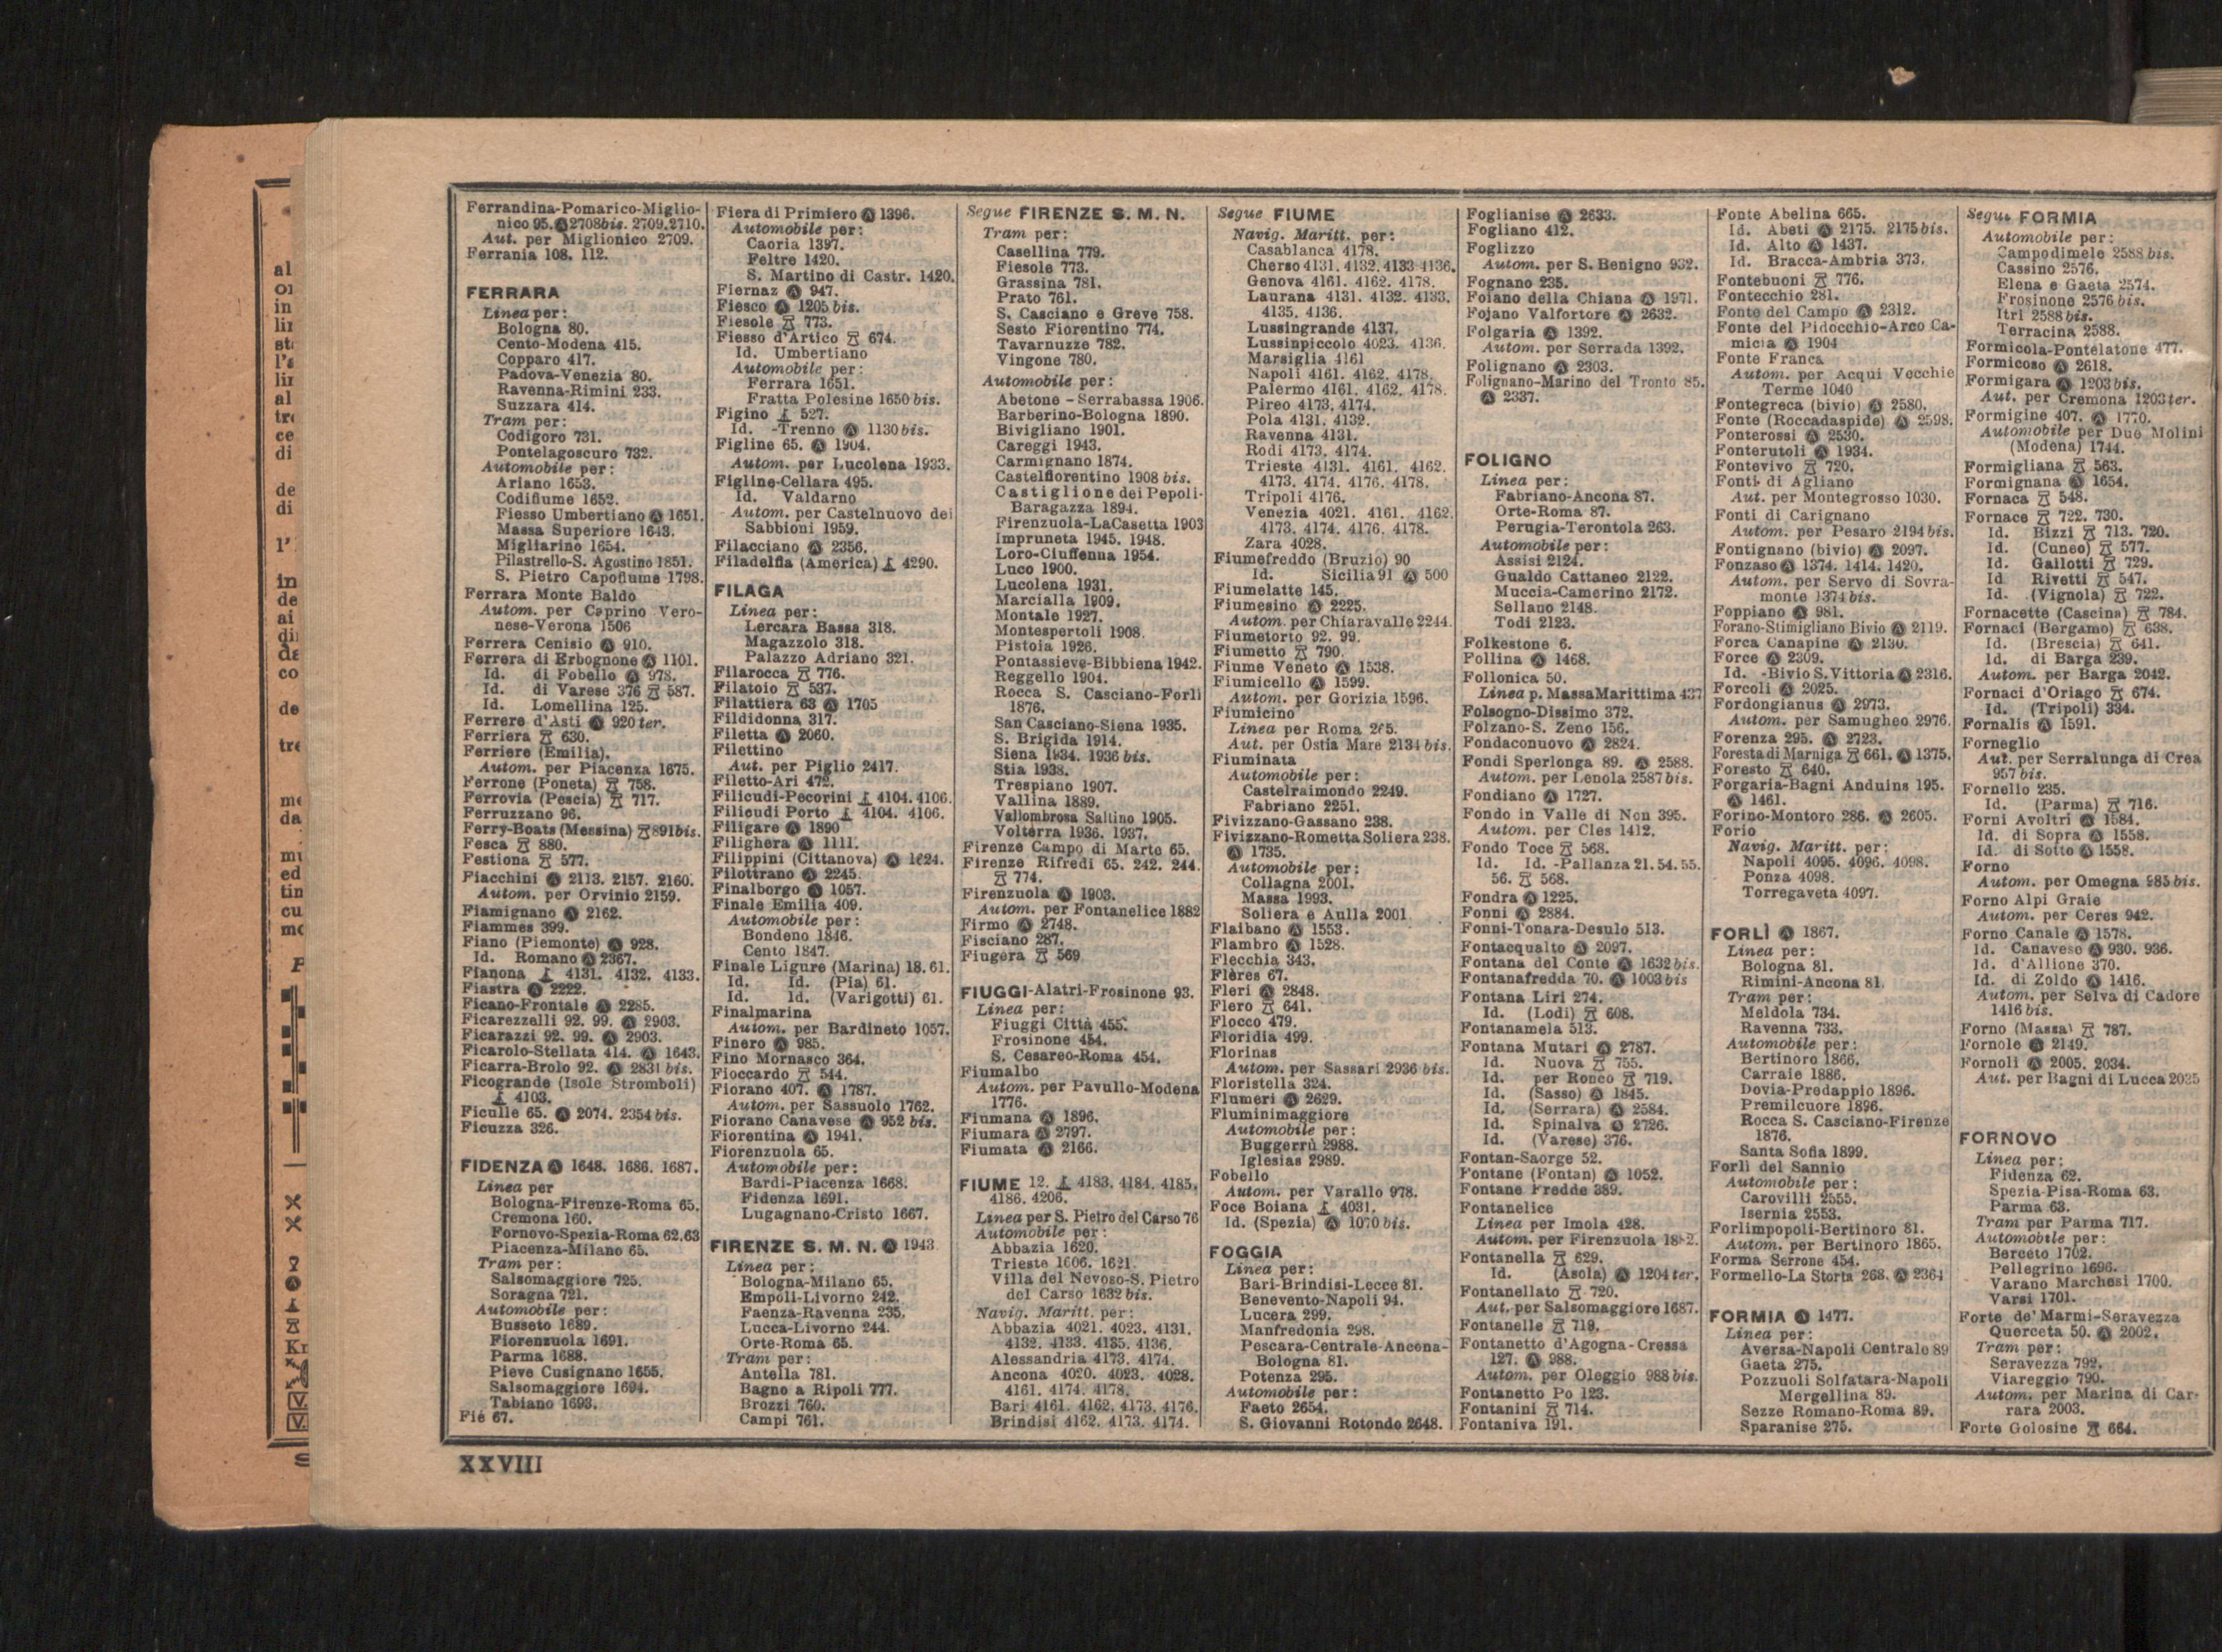 Ferrandina-Pomarico-Miglio-
nico 95. Ⓐ 2708bis. 2709. 2710.
Aut. per Miglionico 2709.
Ferrania 108. 112.
FERRARA
Linea per:
Bologna 80.
Cento-Modena 415.
Copparo 417.
Padova-Venezia 80.
Ravenna-Rimini 233.
Suzzara 414.
Tram per:
Codigoro 731.
Pontelagoscuro 732.
Automobile per:
Ariano 1653.
Codifiume 1652.
Fiesso Umbertiano Ⓐ 1651.
Massa Superiore 1643.
Migliarino 1654.
Pilastrello-S. Agostino 1851.
S. Pietro Capofiume 1798.
Ferrara Monte Baldo
Autom. per Caprino Vero-
nese-Verona 1506
Ferrera Cenisio Ⓐ 910.
Ferrera di Erbognone Ⓐ 1101.
Id. di Fobello Ⓐ 978.
Id. di Varese 376 587.
Id. Lomellina 125.
Ferrere d'Asti Ⓐ 920 ter.
Ferriera 630.
Ferriere (Emilia).
Autom. per Piacenza 1675.
Ferrone (Poneta) 758.
Ferrovia (Pescia) 717.
Ferruzzano 96.
Ferry-Boats (Messina) 891bis.
Fesca 880.
Festiona 577.
Fiacchini Ⓐ 2113. 2157. 2160.
Autom. per Orvinio 2159.
Fiamignano Ⓐ 2162.
Fiammes 399.
Fiano (Piemonte) Ⓐ 928.
Id. Romano Ⓐ 2367.
Fianona 4131. 4132. 4133.
Fiastra Ⓐ 2222.
Ficano-Frontale Ⓐ 2285.
Ficarezzelli 92. 99. Ⓐ 2903.
Ficarazzi 92. 99. Ⓐ 2903.
Ficarolo-Stellata 414. Ⓐ 1643.
Ficarra-Brolo 92. Ⓐ 2831 bis.
Ficogrande (Isole Stromboli)
4103.
Ficulle 65. Ⓐ 2074. 2354 bis.
Ficuzza 326.
FIDENZA Ⓐ 1648. 1686. 1687.
Linea per
Bologna-Firenze-Roma 65.
Cremona 160.
Fornovo-Spezia-Roma 62.63
Piacenza-Milano 65.
Tram per:
Salsomaggiore 725.
Soragna 721.
Automobile per:
Busseto 1689.
Fiorenzuola 1691.
Parma 1688.
Pieve Cusignano 1655.
Salsomaggiore 1694.
Tabiano 1693.
Fié 67.
Fiera di Primiero Ⓐ 1396.
Automobile per:
Caoria 1397.
Feltre 1420.
S. Martino di Castr. 1420.
Fiernaz Ⓐ 947.
Fiesco Ⓐ 1205 bis.
Fiesole 773.
Fiesso d'Artico 674.
Id. Umbertiano
Automobile per:
Ferrara 1651.
Fratta Polesine 1650 bis.
Figino 527.
Id. -Trenno Ⓐ 1130 bis.
Figline 65. Ⓐ 1904.
Autom. per Lucolena 1933.
Figline-Cellara 495.
Id. Valdarno
Autom. per Castelnuovo dei
Sabbioni 1959.
Filacciano Ⓐ 2356.
Filadelfia (America) 4290.
FILAGA
Linea per:
Lercara Bassa 318.
Magazzolo 318.
Palazzo Adriano 321.
Filarocca 776.
Filatoio 537.
Filattiera 63 Ⓐ 1705
Fildidonna 317.
Filetta Ⓐ 2060.
Filettino
Aut. per Piglio 2417.
Filetto-Ari 472.
Filicudi-Pecorini 4104. 4106.
Filicudi Porto 4104. 4106.
Filigare Ⓐ 1890
Filighera Ⓐ 1111.
Filippini (Cittanova) Ⓐ 1624.
Filottrano Ⓐ 2245.
Finalborgo Ⓐ 1057.
Finale Emilia 409.
Automobile per:
Bondeno 1846.
Cento 1847.
Finale Ligure (Marina) 18. 61.
Id. Id. (Pia) 61.
Id. Id. (Varigotti) 61.
Finalmarina
Autom. per Bardineto 1057.
Finero Ⓐ 985.
Fino Mornasco 364.
Fioccardo 544.
Fiorano 407. Ⓐ 1787.
Autom. per Sassuolo 1762.
Fiorano Canavese Ⓐ 952 bis.
Fiorentina Ⓐ 1941.
Fiorenzuola 65.
Automobile per:
Bardi-Piacenza 1668.
Fidenza 1691.
Lugagnano-Cristo 1667.
FIRENZE S. M. N. Ⓐ 1943
Linea per:
Bologna-Milano 65.
Empoli-Livorno 242.
Faenza-Ravenna 235.
Lucca-Livorno 244.
Orte-Roma 65.
Tram per:
Antella 781.
Bagno a Ripoli 777.
Brozzi 760.
Campi 761.
Segue FIRENZE S. M. N.
Tram per:
Casellina 779.
Fiesole 773.
Grassina 781.
Prato 761.
S. Casciano e Greve 758.
Sesto Fiorentino 774.
Tavarnuzze 782.
Vingone 780.
Automobile per:
Abetone - Serrabassa 1906.
Barberino-Bologna 1890.
Bivigliano 1901.
Careggi 1943.
Carmignano 1874.
Castelfiorentino 1908 bis.
Castiglione dei Pepoli-
Baragazza 1894.
Firenzuola-LaCasetta 1903
Impruneta 1945. 1948.
Loro-Ciuffenna 1954.
Luco 1900.
Lucolena 1931.
Marcialla 1909.
Montale 1927.
Montespertoli 1908.
Pistoia 1926.
Pontassieve-Bibbiena 1942.
Reggello 1904.
Rocca S. Casciano-Forlì
1876.
San Casciano-Siena 1935.
S. Brigida 1914.
Siena 1934. 1936 bis.
Stia 1938.
Trespiano 1907.
Vallina 1889.
Vallombrosa Saltino 1905.
Volterra 1936. 1937.
Firenze Campo di Marte 65.
Firenze Rifredi 65. 242. 244.
774.
Firenzuola Ⓐ 1903.
Autom. per Fontanelice 1882
Firmo Ⓐ 2748.
Fisciano 287.
Fiugera 569
FIUGGI-Alatri-Frosinone 93.
Linea per:
Fiuggi Città 455.
Frosinone 454.
S. Cesareo-Roma 454.
Fiumalbo
Autom. per Pavullo-Modena
1776.
Fiumana Ⓐ 1896.
Fiumara Ⓐ 2797.
Fiumata Ⓐ 2166.
FIUME 12. 4183. 4184. 4185.
4186. 4206.
Linea per S. Pietro del Carso 76
Automobile per:
Abbazia 1620.
Trieste 1606. 1621.
Villa del Nevoso-S. Pietro
del Carso 1632 bis.
Navig. Maritt. per:
Abbazia 4021. 4023. 4131.
4132. 4133. 4135. 4136.
Alessandria 4173. 4174.
Ancona 4020. 4023. 4028.
4161. 4174. 4178.
Bari 4161. 4162. 4173. 4176.
Brindisi 4162. 4173. 4174.
Segue FIUME
Navig. Maritt. per:
Casablanca 4178.
Cherso 4131. 4132. 4133 4136.
Genova 4161. 4162. 4178.
Laurana 4131. 4132. 4133.
4135. 4136.
Lussingrande 4137.
Lussinpiccolo 4023. 4136.
Marsiglia 4161
Napoli 4161. 4162. 4178.
Palermo 4161. 4162. 4178.
Pireo 4173. 4174.
Pola 4131. 4132.
Ravenna 4131.
Rodi 4173. 4174.
Trieste 4131. 4161. 4162.
4173. 4174. 4176. 4178.
Tripoli 4176.
Venezia 4021. 4161. 4162.
4173. 4174. 4176. 4178.
Zara 4028.
Fiumefreddo (Bruzio) 90
Id. Sicilia 91 Ⓐ 500
Fiumelatte 145.
Fiumesino Ⓐ 2225.
Autom. per Chiaravalle 2244.
Fiumetorto 92. 99.
Fiumetto 790.
Fiume Veneto Ⓐ 1538.
Fiumicello Ⓐ 1599.
Autom. per Gorizia 1596.
Fiumicino
Linea per Roma 265.
Aut. per Ostia Mare 2134 bis.
Fiuminata
Automobile per:
Castelraimondo 2249.
Fabriano 2251.
Fivizzano-Gassano 238.
Fivizzano-Rometta Soliera 238.
Ⓐ 1735.
Automobile per:
Collagna 2001.
Massa 1993.
Soliera e Aulla 2001
Flaibano Ⓐ 1553.
Flambro Ⓐ 1528.
Flecchia 343.
Flères 67.
Fleri Ⓐ 2848.
Flero 641.
Flocco 479.
Floridia 499.
Florinas
Autom. per Sassari 2936 bis.
Floristella 324.
Flumeri Ⓐ 2629.
Fluminimaggiore
Automobile per:
Buggerrù 2988.
Iglesias 2989.
Fobello
Autom. per Varallo 978.
Foce Boiana 4031.
Id. (Spezia) Ⓐ 1070 bis.
FOGGIA
Linea per:
Bari-Brindisi-Lecce 81.
Benevento-Napoli 94.
Lucera 299.
Manfredonia 298.
Pescara-Centrale-Ancona-
Bologna 81.
Potenza 295.
Automobile per:
Faeto 2654.
S. Giovanni Rotondo 2648.
Foglianise Ⓐ 2633.
Fogliano 412.
Foglizzo
Autom. per S. Benigno 932.
Fognano 235.
Foiano della Chiana Ⓐ 1971.
Fojano Valfortore Ⓐ 2632.
Folgaria Ⓐ 1392.
Autom. per Serrada 1392.
Folignano Ⓐ 2303.
Folignano-Marino del Tronto 85.
Ⓐ 2337.
FOLIGNO
Linea per:
Fabriano-Ancona 87.
Orte-Roma 87.
Perugia-Terontola 263.
Automobile per:
Assisi 2124.
Gualdo Cattaneo 2122.
Muccia-Camerino 2172.
Sellano 2148.
Todi 2123.
Folkestone 6.
Follina Ⓐ 1468.
Follonica 50.
Linea p. Massa Marittima 437
Folsogno-Dissimo 372.
Folzano-S. Zeno 156.
Fondaconuovo Ⓐ 2824.
Fondi Sperlonga 89. Ⓐ 2588.
Autom. per Lenola 2587 bis.
Fondiano Ⓐ 1727.
Fondo in Valle di Non 395.
Autom. per Cles 1412.
Fondo Toce 568.
Id. Id. -Pallanza 21. 54. 55.
56. 568.
Fondra Ⓐ 1225.
Fonni Ⓐ 2884.
Fonni-Tonara-Desulo 513.
Fontacqualto Ⓐ 2097.
Fontana del Conte Ⓐ 1632 bis.
Fontanafredda 70. Ⓐ 1003 bis
Fontana Liri 274.
Id. (Lodi) 608.
Fontanamela 513.
Fontana Mutari Ⓐ 2787.
Id. Nuova 755.
Id. per Ronco 719.
Id. (Sasso) Ⓐ 1845.
Id. (Serrara) Ⓐ 2584.
Id. Spinalva Ⓐ 2726.
Id. (Varese) 376.
Fontan-Saorge 52.
Fontane (Fontan) Ⓐ 1052.
Fontane Fredde 389.
Fontanelice
Linea per Imola 428.
Autom. per Firenzuola
Fontanella 629.
Id. (Asola) Ⓐ 1204 ter.
Fontanellato 720.
Aut. per Salsomaggiore 1687.
Fontanelle 719.
Fontanetto d'Agogna-Cressa
127. Ⓐ 988.
Autom. per Oleggio 988 bis.
Fontanetto Po 123.
Fontanini 714.
Fontaniva 191.
Fonte Abelina 665.
Id. Abeti Ⓐ 2175. 2175 bis.
Id. Alto Ⓐ 1437.
Id. Bracca-Ambria 373.
Fontebuoni 776.
Fontecchio 281.
Fonte del Campo Ⓐ 2312.
Fonte del Pidocchio-Arco Ca-
micia Ⓐ 1904
Fonte Franca
Autom. per Acqui Vecchie
Terme 1040
Fontegreca (bivio) Ⓐ 2580.
Fonte (Roccadaspide) Ⓐ 2598.
Fonterossi Ⓐ 2530.
Fonterutoli Ⓐ 1934.
Fontevivo 720.
Fonti di Agliano
Aut. per Montegrosso 1030.
Fonti di Carignano
Autom. per Pesaro 2194 bis.
Fontignano (bivio) Ⓐ 2097.
Fonzaso Ⓐ 1374. 1414. 1420.
Autom. per Servo di Sovra-
monte 1374 bis.
Foppiano Ⓐ 981.
Forano-Stimigliano Bivio Ⓐ 2119.
Forca Canapine Ⓐ 2150.
Force Ⓐ 2309.
Id. -Bivio S. Vittoria Ⓐ 2316.
Forcoli Ⓐ 2025.
Fordongianus Ⓐ 2973.
Autom. per Samugheo 2976.
Forenza 295. Ⓐ 2723.
Foresta di Marniga 661. Ⓐ 1375.
Foresto 640.
Forgaria-Bagni Anduins 195.
Ⓐ 1461.
Forino-Montoro 286. Ⓐ 2605.
Forio
Navig. Maritt. per:
Napoli 4095. 4096. 4098.
Ponza 4098.
Torregaveta 4097.
FORLÌ Ⓐ 1867.
Linea per:
Bologna 81.
Rimini-Ancona 81
Tram per:
Meldola 734.
Ravenna 733.
Automobile per:
Bertinoro 1866.
Carraie 1886.
Dovia-Predappio 1896.
Premilcuore 1896.
Rocca S. Casciano-Firenze
1876.
Santa Sofia 1899.
Forlì del Sannio
Automobile per:
Carovilli 2555.
Isernia 2553.
Forlimpopoli-Bertinoro 81.
Autom. per Bertinoro 1865.
Forma Serrone 454.
Formello-La Storta 268. Ⓐ 2364
FORMIA Ⓐ 1477.
Linea per:
Aversa-Napoli Centrale 89
Gaeta 275.
Pozzuoli Solfatara-Napoli
Mergellina 89.
Sezze Romano-Roma 89.
Sparanise 275.
Segue FORMIA
Automobile per:
Campodimele 2588 bis.
Cassino 2576.
Elena e Gaeta 2574.
Frosinone 2576 bis.
Itri 2588 bis.
Terracina 2588.
Formicola-Pontelatone 477.
Formicoso Ⓐ 2618.
Formigara Ⓐ 1203 bis.
Aut. per Cremona 1203 ter.
Formigine 407. Ⓐ 1770.
Automobile per Due Molini
(Modena) 1744.
Formigliana 563.
Formignana Ⓐ 1654.
Fornaca 548.
Fornace 722. 730.
Id. Bizzi 713. 720.
Id. (Cuneo) 577.
Id. Gallotti 729.
Id Rivetti 547.
Id. (Vignola) 722.
Fornacette (Cascina) 784.
Fornaci (Bergamo) 638.
Id. (Brescia) 641.
Id. di Barga 239.
Autom. per Barga 2042.
Fornaci d'Oriago 674.
Id. (Tripoli) 334.
Fornalis Ⓐ 1591.
Forneglio
Aut. per Serralunga di Crea
957 bis.
Fornello 235.
Id. (Parma) 716.
Forni Avoltri Ⓐ 1584.
Id. di Sopra Ⓐ 1558.
Id. di Sotto Ⓐ 1558.
Forno
Autom. per Omegna 985 bis.
Forno Alpi Graie
Autom. per Ceres 942.
Forno Canale Ⓐ 1578.
Id. Canaveso Ⓐ 930. 936.
Id. d'Allione 370.
Id. di Zoldo Ⓐ 1416.
Autom. per Selva di Cadore
1416 bis.
Forno (Massa) 787.
Fornole Ⓐ 2149.
Fornoli Ⓐ 2005. 2034.
Aut. per Bagni di Lucca 2035
FORNOVO
Linea per:
Fidenza 62.
Spezia-Pisa-Roma 63.
Parma 63.
Tram per Parma 717.
Automobile per:
Berceto 1702.
Pellegrino 1696.
Varano Marchesi 1700.
Varsi 1701.
Forte de' Marmi-Seravezza
Querceta 50. Ⓐ 2002.
Tram per:
Seravezza 792.
Viareggio 790.
Autom. per Marina di Car-
rara 2003.
Forte Golosine 664.
XXVIII